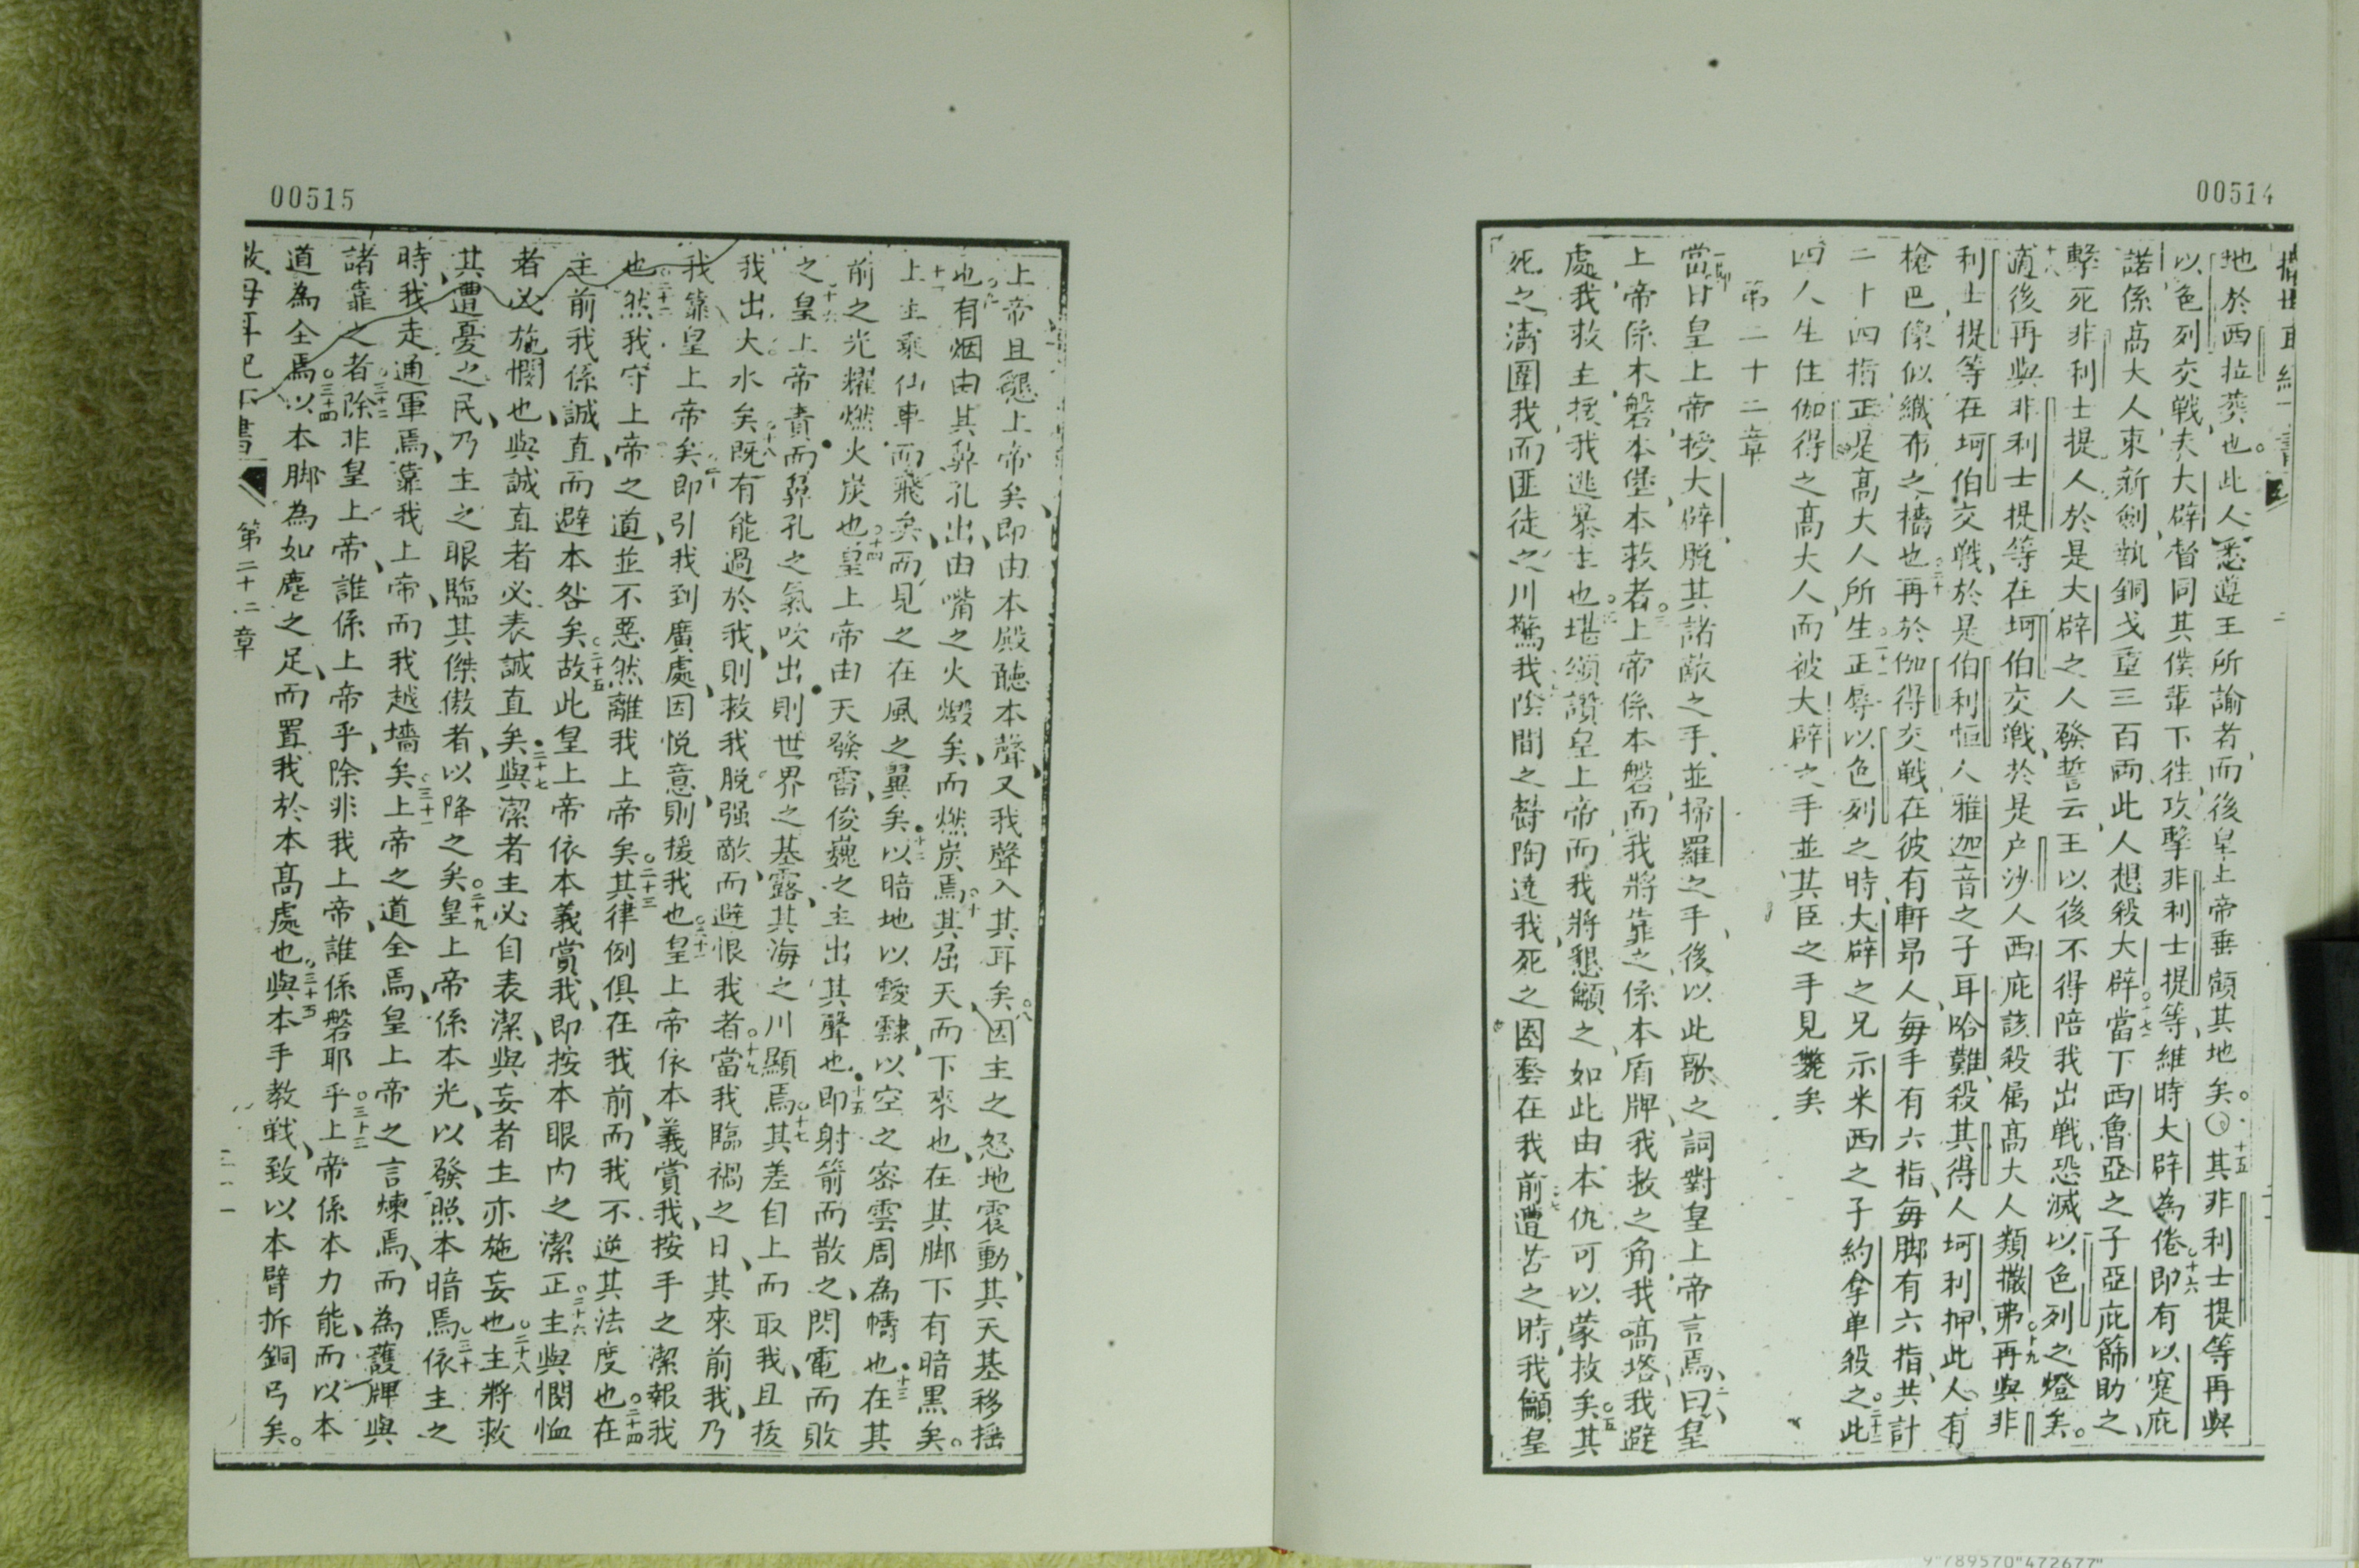 00514
地於西拉葬也。此人悉遵王所諭者、而後皇上帝垂顧其地矣。〇十五其非利士提等再與
以色列交戰、夫大辟督同其僕輩下徃、攻擊非利士提等、維時大辟為倦十六即有以寔庇
諾係高大人束新劍、執銅戈重三百両、此人想殺大辟、十七當下西魯亞之子亞庇篩助之、
擊死非利士提人、於是大辟之人發誓云、王以後不得陪我出戰、恐滅以色列之燈矣。
十八適後再與非利士提等在坷伯交戰、於是户沙人西庇該殺属高大人類撒弗十九再與非
利士提等在坷伯交戰、於是伯利恒人雅迦音之子耳哈難殺其得人坷利押、此人有
槍巴像似織布之檣也二十再於伽得交戰、在彼有軒昂人、每手有六指、每脚有六指、共計
二十四指、正是高大人所生二十一正辱以色列之時、大辟之兄示米西之子約拿单殺之二十二此
四人生住伽得之高大人、而被大辟之手、並其臣之手見斃矣
第二十二章
當日皇上帝、援大辟脱其諸敵之手、並掃羅之手、後以此歌之詞對皇上帝言焉、二曰皇
上帝係本磐本堡、本救者三上帝係本磐、而我將靠之、係本盾牌、我救之角、我高塔、我避
處、我救主、援我逃暴主也四堪頌讚皇上帝、而我將懇籲之、如此由本仇可以蒙救矣五其
死之濤圍我、而匪徒之川驚我六陰間之愁陶遶我、死之圈套在我前七遭苦之時、我籲皇
00515
上帝、且懇上帝矣、即由本殿聽本聲、又我聲入其耳矣、八因主之怒、地震動、其天基移搖
也九有烟由其鼻孔出、由嘴之火燬矣、而燃炭焉十其屈天而下來也、在其脚下有暗黒矣。
十一上主乘仙車而飛矣、而見之在風之翼矣十二以暗地以靉靆、以空之密雲周為幬也十三在其
前之光耀、燃火炭也十四皇上帝由天發雷、俊巍之主出其聲也十五即射箭而散之、閃電而敗
之十六皇上帝責、而鼻孔之氣吹出、則世界之基露、其海之川顯焉十七其差自上而取我、且抜
我出大水矣十八既有能過於我、則救我脱强敵、而避恨我者十九當我臨禍之日、其來前我、乃
我靠皇上帝矣二十即引我到廣處、因悦意、則援我也二十一皇上帝依本義賞我、按手之潔報我
也二十二然我守上帝之道、並不惡然離我上帝矣二十三其律例俱在我前、而我不逆其法度也二十四在
主前我係誠直、而避本咎矣二十五故此皇上帝依本義賞我、即按本眼内之潔正二十六主與憫恤
者、必施憫也、與誠直者、必表誠直矣二十七與潔者、主必自表潔、與妄者、主亦施妄也二十八主將救
其遭憂之民、乃主之眼臨其傑傲者、以降之矣二十九皇上帝係本光、以發照本暗焉三十依主之
時、我走通軍焉、靠我上帝、而我越墻矣三十一上帝之道全焉、皇上帝之言煉焉、而為護牌與
諸靠之者三十二除非皇上帝、誰係上帝乎、除非我上帝、誰係磐耶乎三十三上帝係本力能、而以本
道為全焉三十四以本脚為如鹿之足、而置我於本高處也三十五與本手教戰、致以本臂拆銅弓矣。
第二十二章